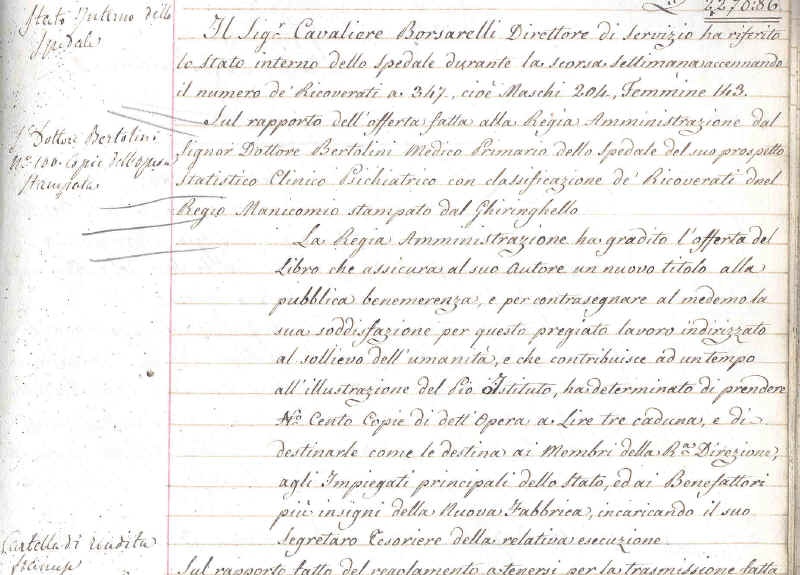 2270:86
Stato Interno dello
Spedale
Il Sig.r Cavaliere Borsarelli Direttore di servizio ha riferito
lo stato interno dello Spedale durante la scorsa settimana accennando
il numero de' Ricoverati a 347, cioè Maschi 204, Femmine 143.
S.r Dottore Bertolini
N.o 100. Copie dell'opera
stampata
Sul rapporto dell'offerta fatta alla Regia Amministrazione dal
Signor Dottore Bertolini Medico Primario dello Spedale del suo prospetto
Statistico Clinico Psichiatrico con classificazione de' Ricoverati nel
Regio Manicomio stampato dal Ghiringhello
La Regia Amministrazione ha gradito l'offerta del
Libro che assicura al suo Autore un nuovo titolo alla
pubblica benemerenza, e per contrasegnare al medemo la
sua soddisfazione per questo pregiato lavoro indirizzato
al sollievo dell'umanità, e che contribuisce ad un tempo
all'illustrazione del Pio Istituto, ha determinato di prendere
N.o Cento Copie di dett'Opera a Lire tre caduna, e di
destinarle come le destina ai Membri della R.a Direzione,
agli Impiegati principali dello Stato, ed ai Benefattori
più insigni della Nuova Fabbrica, incaricando il suo
Segretaro Tesoriere della relativa esecuzione
Cartella di rendita
Sul rapporto fatto del regolamento a tenersi per la trasmissione fatta